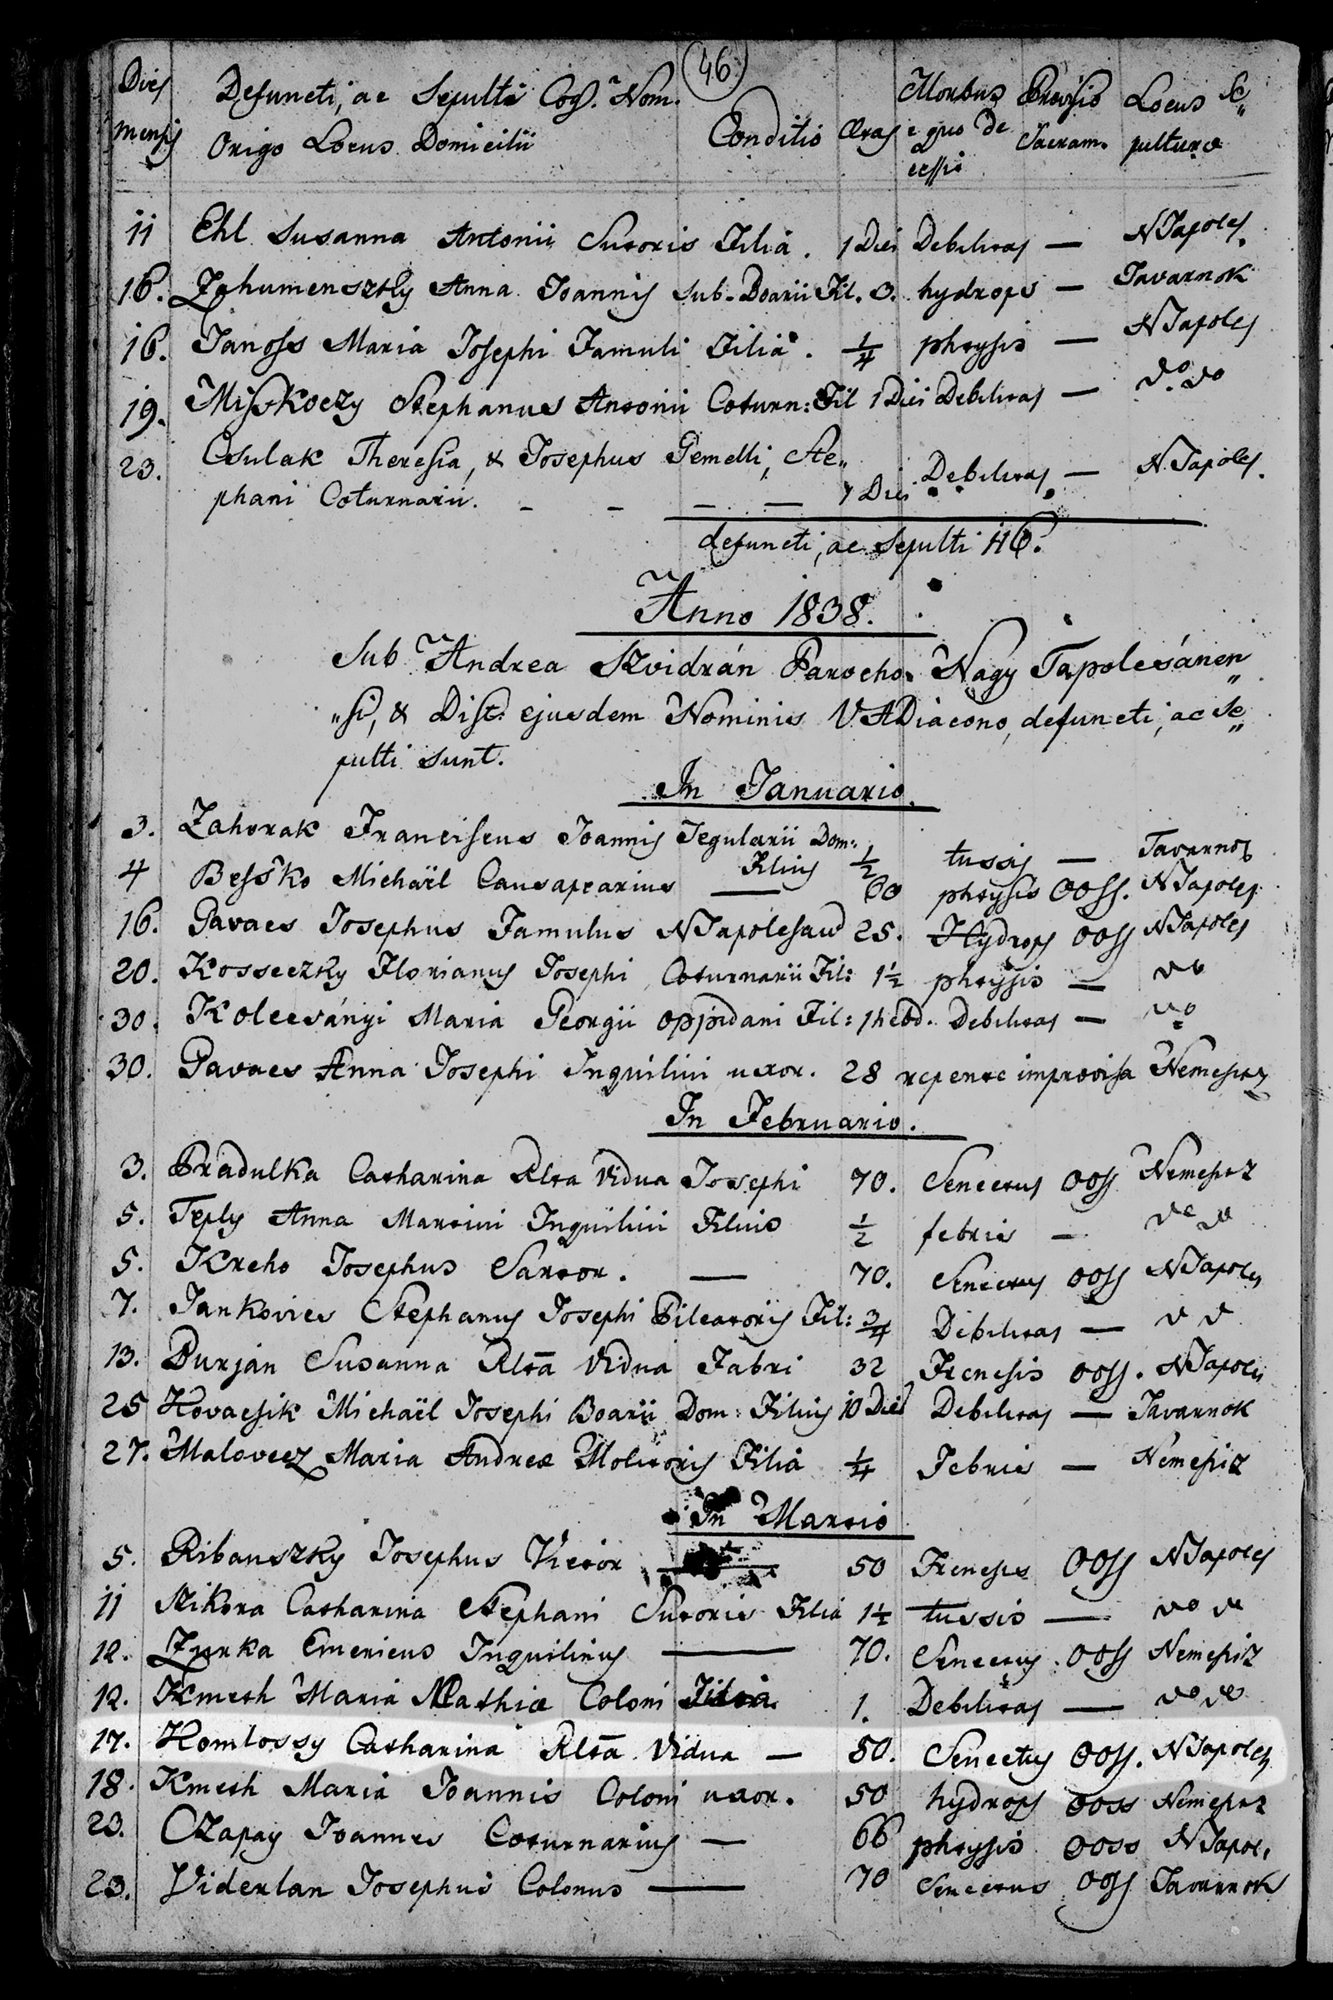 46
Dies Defuncti, ac Sepulti Cog. Nom. Conditio Ætas Morbus Provisio Locus Se„
mensis Origo Locus Domicilii e quo de Sacram. pulturæ
cessit
11 Ehl Susanna Antonii Sutoris Filia. 1 Diei Debilitas — NTapolcs.
16. Zahumenszky Anna Joannis Sub-Boarii Fil. hydrops — Tavarnok
16. Janoss Maria Josephi Famuli Filia. 1/4 phtysis — NTapolcs
19. Misskoczy Stephanus Antonii Coturn: Fil 1 Diei Debilitas — do do
23. Csulak Theresia, & Josephus Gemelli, Ste„
phani Coturnarii. - - - — 7 Diei Debilitas — N.Tapolcs.
defuncti, ac Sepulti 116.
Anno 1838.
Sub Andrea Szvidrán Parocho Nagy Tapolcsánen„
„si, & Dist: ejusdem Nominis VADiacono, defuncti, ac Se„
pulti sunt.
In Januario.
3. Zahorak Franciscus Joannis Tegularii Dom: Filius 1/2 tussis — Tavarnok
4 Bessko Michaël Causapearius — 60 phtysis OOSS. NTapolcs
16. Pavacs Josephus Famulus NTapolcsan 25. Hydrops OOSS NTapolcs
20. Kosseczky Florianus Josephi Coturnarii Fil: 1 1/2 phtysis — do
30. Kolecsányi Maria Georgii oppidani Fil: 1 hebd. Debilitas — do
30. Pavacs Anna Josephi Inquilini uxor. 28 repente improvisa Nemesitz
In Februario.
3. Pradulka Catharina Rlta Vidua Josephi 70. Senectus OOSS Nemesitz
5. Teply Anna Martini Inquilini Filia 1/2 febris — do do
5. Kreho Josephus Sartor. — 70. Senectus OOSS NTapolcs
7. Jankovics Stephanus Josephi Pileatoris Fil: 3/4 Debilitas — d d
13. Durján Susanna Rlta Vidua Fabri 32 Frenesis OOSS. NTapolcs
25 Kovacsik Michaël Josephi Boarii Dom: Filius 10 Dies Debilitas — Tavarnok
27. Maloveez Maria Andreæ Molitoris Filia 1/4 Febris — Nemesitz
In Martio
5. Ribanszky Josephus Vietor — 50 Frenesis OOSS NTapolcs
11 Sikora Catharina Stephani Sutoris Filia 1 1/2 tussis — do do
12. Zurka Emericus Inquilinus — 70. Senectus OOSS Nemesitz
12. Kmeth Maria Mathiæ Coloni Filia 1. Debilitas — do do
17. Komlossy Catharina Rlta Vidua — 50. Senectus OOSS. NTapolcs
18. Kmeth Maria Joannis Coloni uxor. 50 hydrops OOSS Nemesitz
23. Czapay Joannes Coturnarius — 66 phtysis OOSS NTapol.
23. Viderlan Josephus Colonus — 70 Senectus OOSS Tavarnok